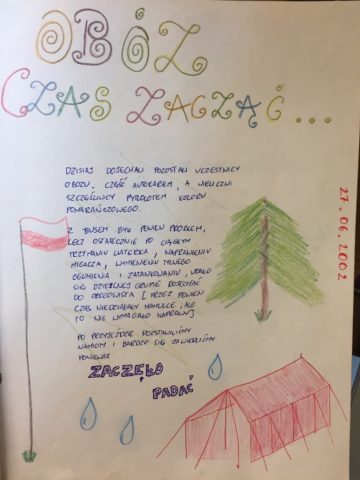 OBÓZ
CZAS ZACZĄĆ...
DZISIAJ DOJECHALI POZOSTALI UCZESTNICY
OBOZU. CZĘŚĆ AUTOKAREM, A NIELICZNI
SZCZĘŚLIWCY BUSOLOTEM KOLORU
POMARAŃCZOWEGO.
Z BUSEM BYŁ PEWIEN PROBLEM,
LECZ OSTATECZNIE PO CIĄGŁYM
TRZYMANIU LUSTERKA, NAPRAWIENIU
MIGACZA, WYMIENIENIU TYLNEGO
OGUMIENIA I ZATANKOWANIU, UDAŁO
SIĘ DZIELNEJ GRUPIE DOJECHAĆ
DO OBOZOWISKA [PRZEZ PEWIEN
CZAS NIEDZIAŁAŁY HAMULCE, ALE
TO NIE WYMAGAŁO NAPRAWY]
PO PRZYJEŹDZIE ROZSTAWILIŚMY
NAMIOTY I BARDZO SIĘ
PONIEWAŻ
ZACZĘŁO
PADAĆ
27.06.2002